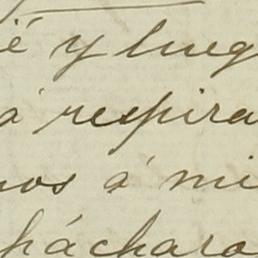 é y lueg
á respira
nos á mi
pácharo